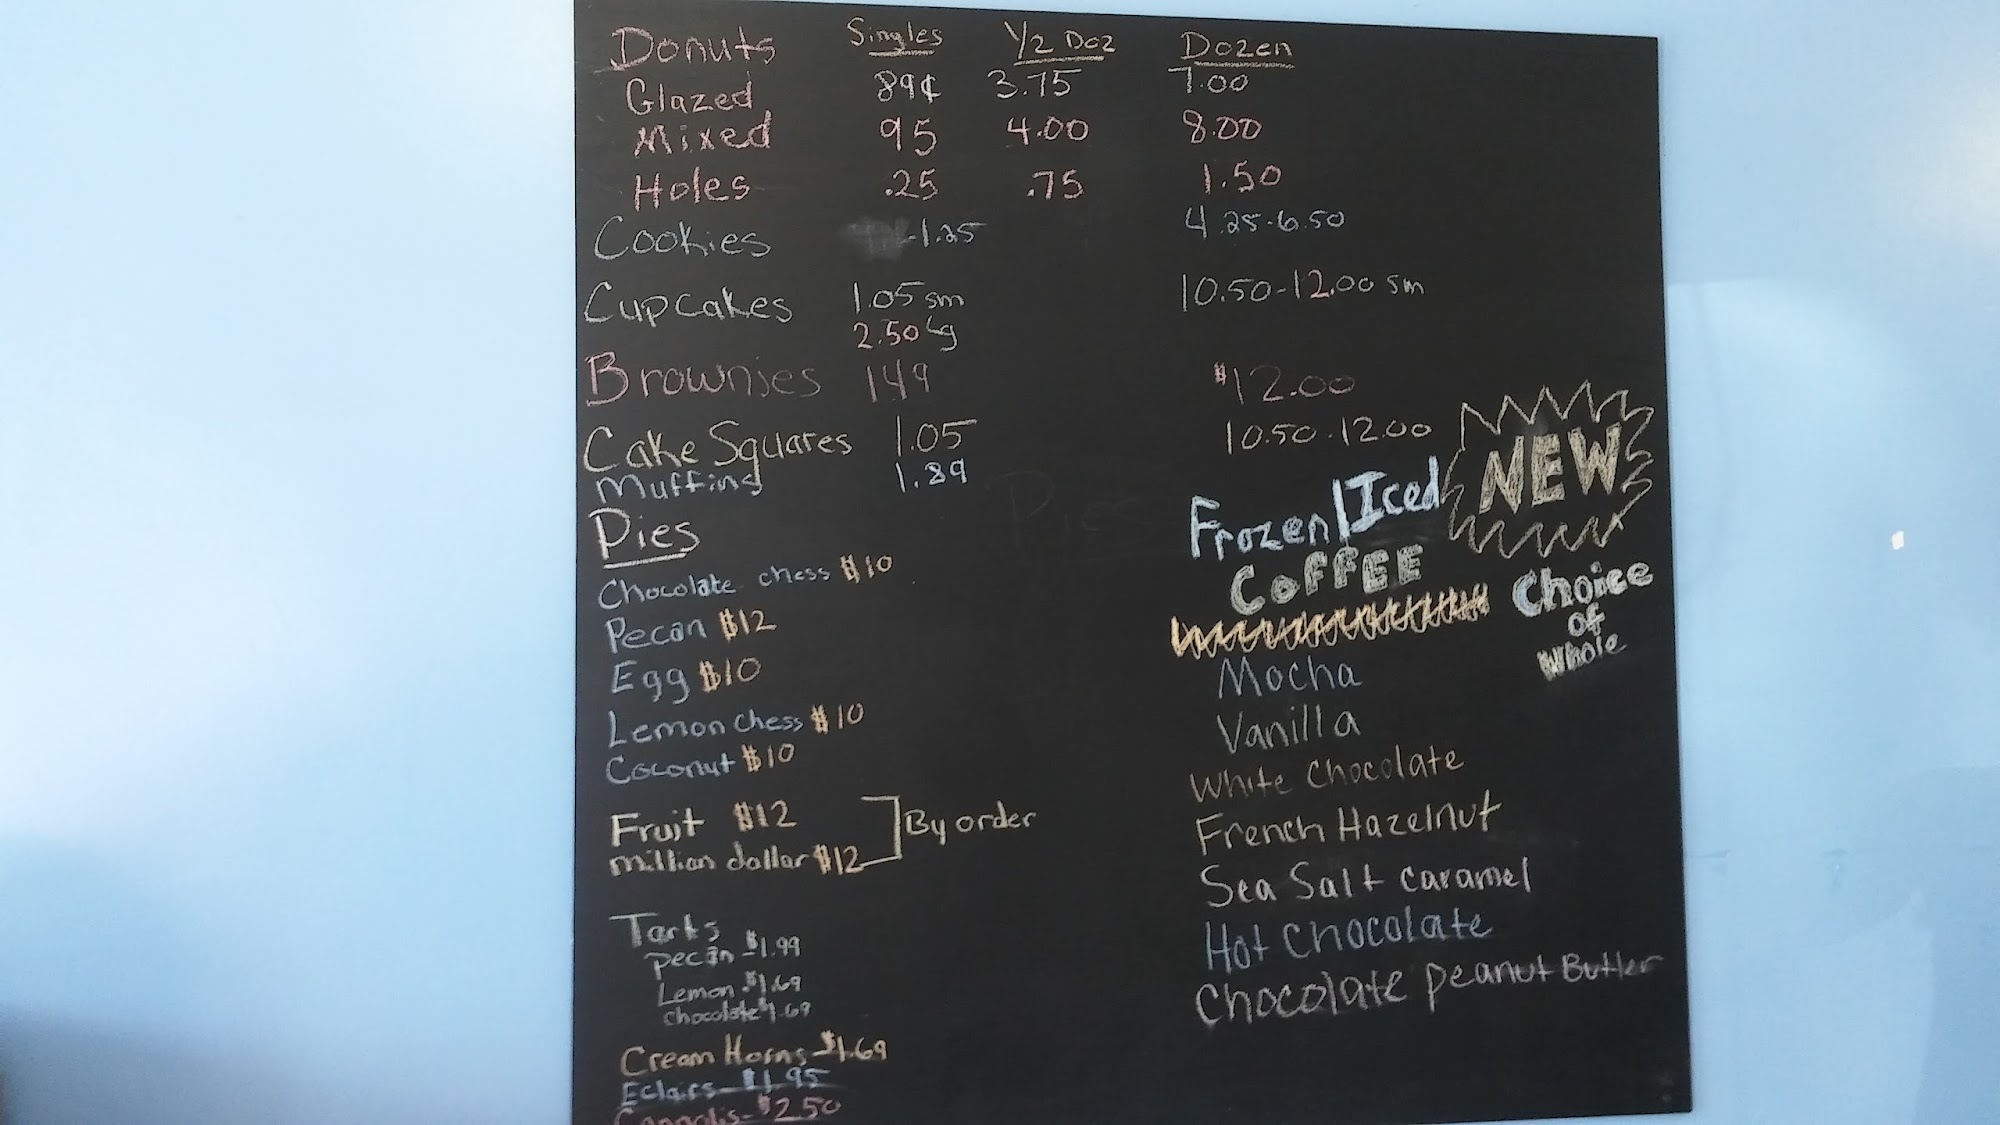 Donuts Singles 1/2 Doz Dozen
Glazed 89¢ 3.75 7.00
Mixed 95 4.00 8.00
Holes .25 .75 1.50
Cookies -1.25 4.25-6.50
Cupcakes 1.05 sm 10.50-12.00 sm
2.50 Lg
Brownies 1.49 $12.00
Cake Squares 1.05 10.50-12.00
Muffins 1.89
Pies
Chocolate chess $10
Pecan $12
Egg $10
Lemon chess $10
Coconut $10
Fruit $12
million dollar $12
By order
Tarts
pecan - $1.99
Lemon - $1.69
chocolate $1.69
Cream Horns - $1.69
Eclairs - $1.95
Cannolis - $2.50
Pies
NEW
Frozen/Iced
COFFEE
Choice
of
whole
Mocha
Vanilla
White Chocolate
French Hazelnut
Sea Salt Caramel
Hot Chocolate
Chocolate Peanut Butter